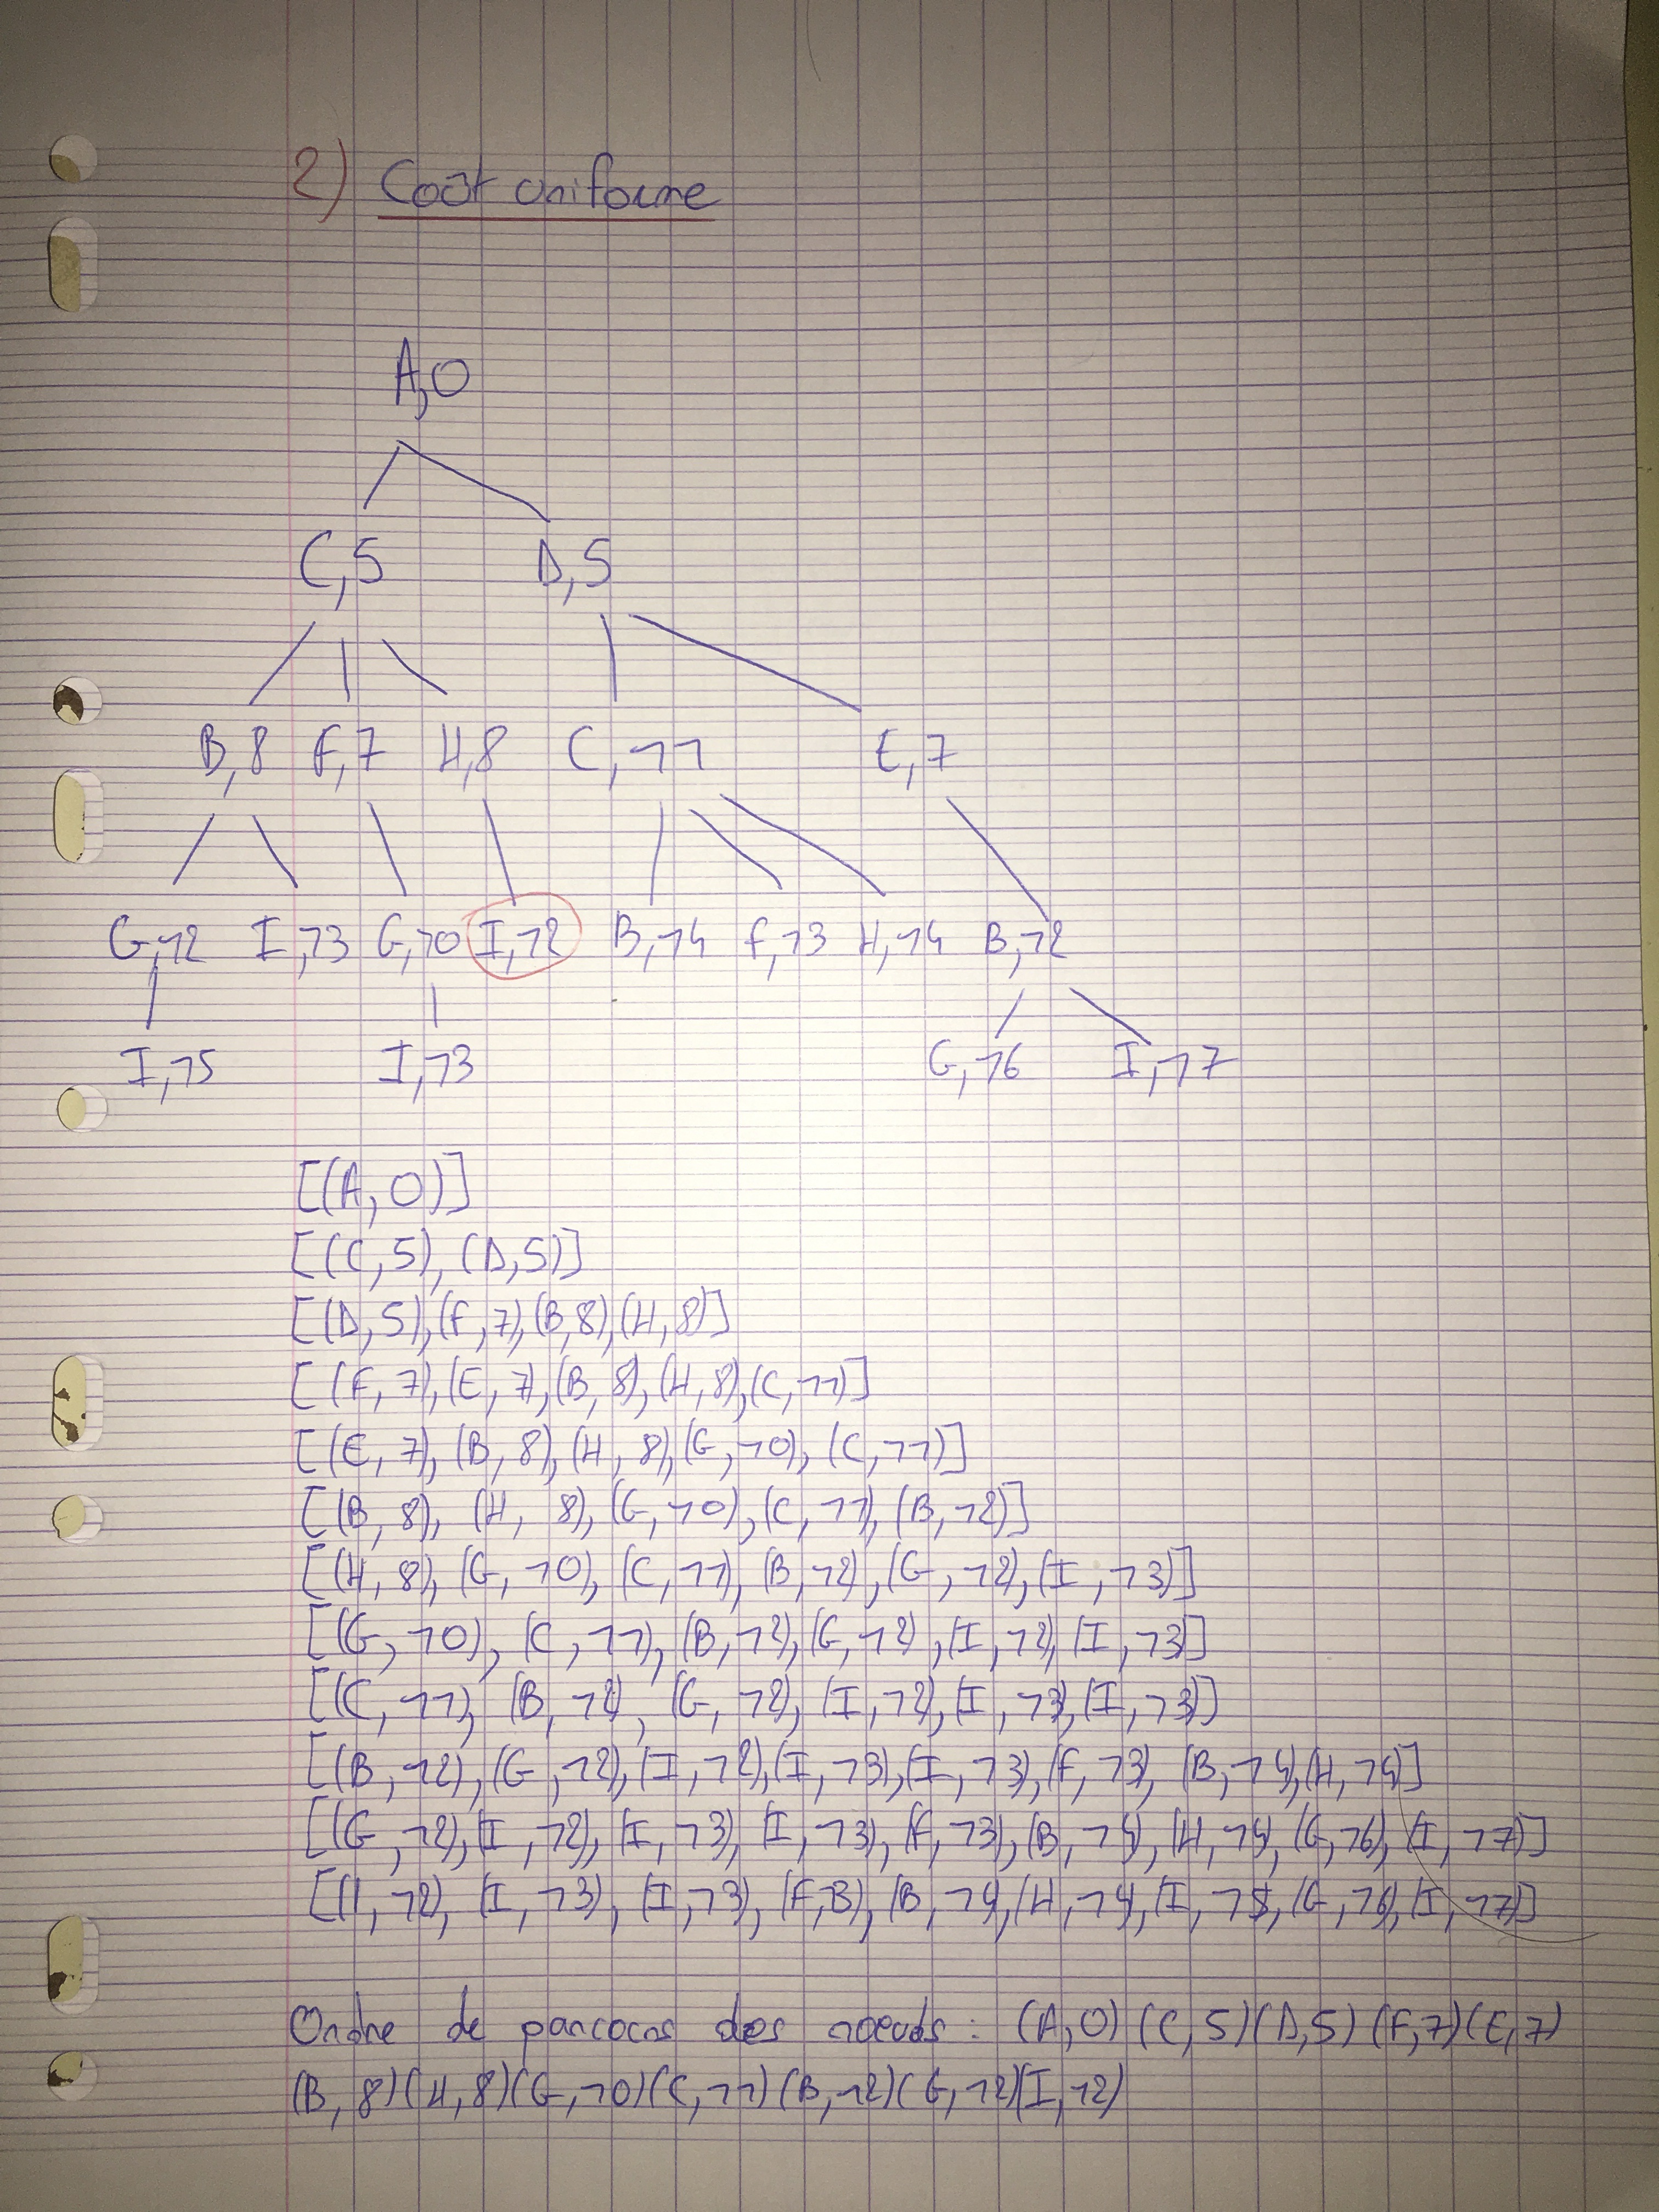 2) Coût uniforme
A,0
C,5 D,5
B,8 F,7 H,8 C,11 E,7
G,12 I,13 G,10 I,12 B,14 F,13 H,14 B,12
I,15 I,13 G,16 I,17
[(A,0)]
[(C,5),(D,5)]
[(D,5),(F,7),(B,8),(H,8)]
[(F,7),(E,7),(B,8),(H,8),(C,11)]
[(E,7),(B,8),(H,8),(G,10),(C,11)]
[(B,8),(H,8),(G,10),(C,11),(B,12)]
[(H,8),(G,10),(C,11),(B,12),(G,12),(I,13)]
[(G,10),(C,11),(B,12),(G,12),(I,12),(I,13)]
[(C,11),(B,12),(G,12),(I,12),(I,13),(I,13)]
[(B,12),(G,12),(I,12),(I,13),(I,13),(F,13),(B,14),(H,14)]
[(G,12),(I,12),(I,13),(I,13),(F,13),(B,14),(H,14),(G,16),(I,17)]
[(I,12),(I,13),(I,13),(F,13),(B,14),(H,14),(I,15),(G,16),(I,17)]
Ordre de parcours des noeuds : (A,0)(C,5)(D,5)(F,7)(E,7)
(B,8)(H,8)(G,10)(C,11)(B,12)(G,12)(I,12)